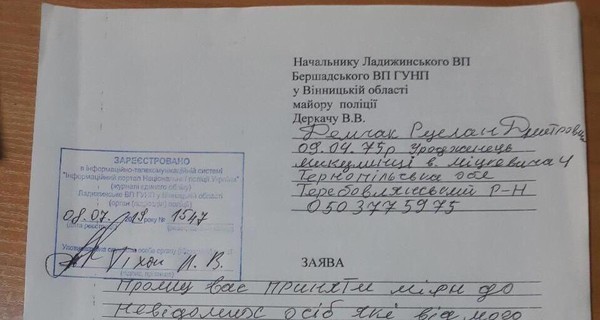 Начальнику Ладижинського ВП
Бершадського ВП ГУНП
у Вінницькій області
майору поліції
Деркачу В.В.
Демчак Руслан Дмитрович
09.04.75р Уродженець
микулинці в. Міцкевича 4
Тернопільська обл
Теребовлянський Р-Н
0503775975
ЗАРЕЄСТРОВАНО
в інформаційно-телекомунікаційній системі
"Інформаційний портал Національної поліції України"
(журнал єдиного обліку)
Ладижинське ВП ГУНП у Вінницькій області
(орган поліції)
08.07. 2019 року № 1547
Тихон Л. В.
ЗАЯВА
Прошу вас прийняти міри до
невідомих осіб які від мого